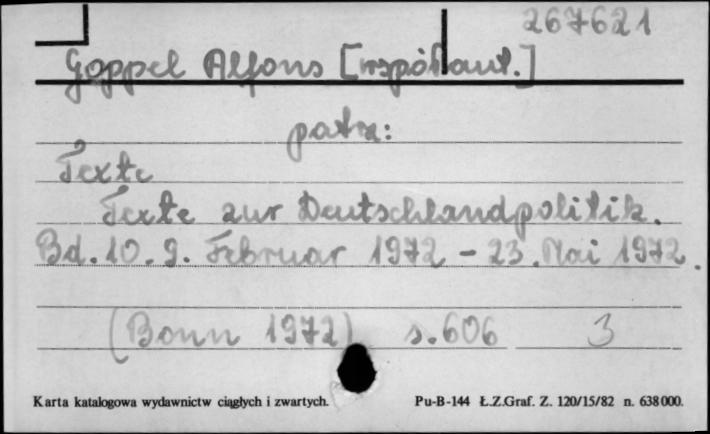 267621
Goppel Alfons [współaut.]
patrz:
Texte
Texte zur Deutschlandpolitik.
Bd. 10. 9. Februar 1972 - 23. Mai 1972.
(Bonn 1972) s. 606 3
Karta katalogowa wydawnictw ciągłych i zwartych. Pu-B-144 Ł.Z.Graf. Z. 120/15/82 n. 638000.